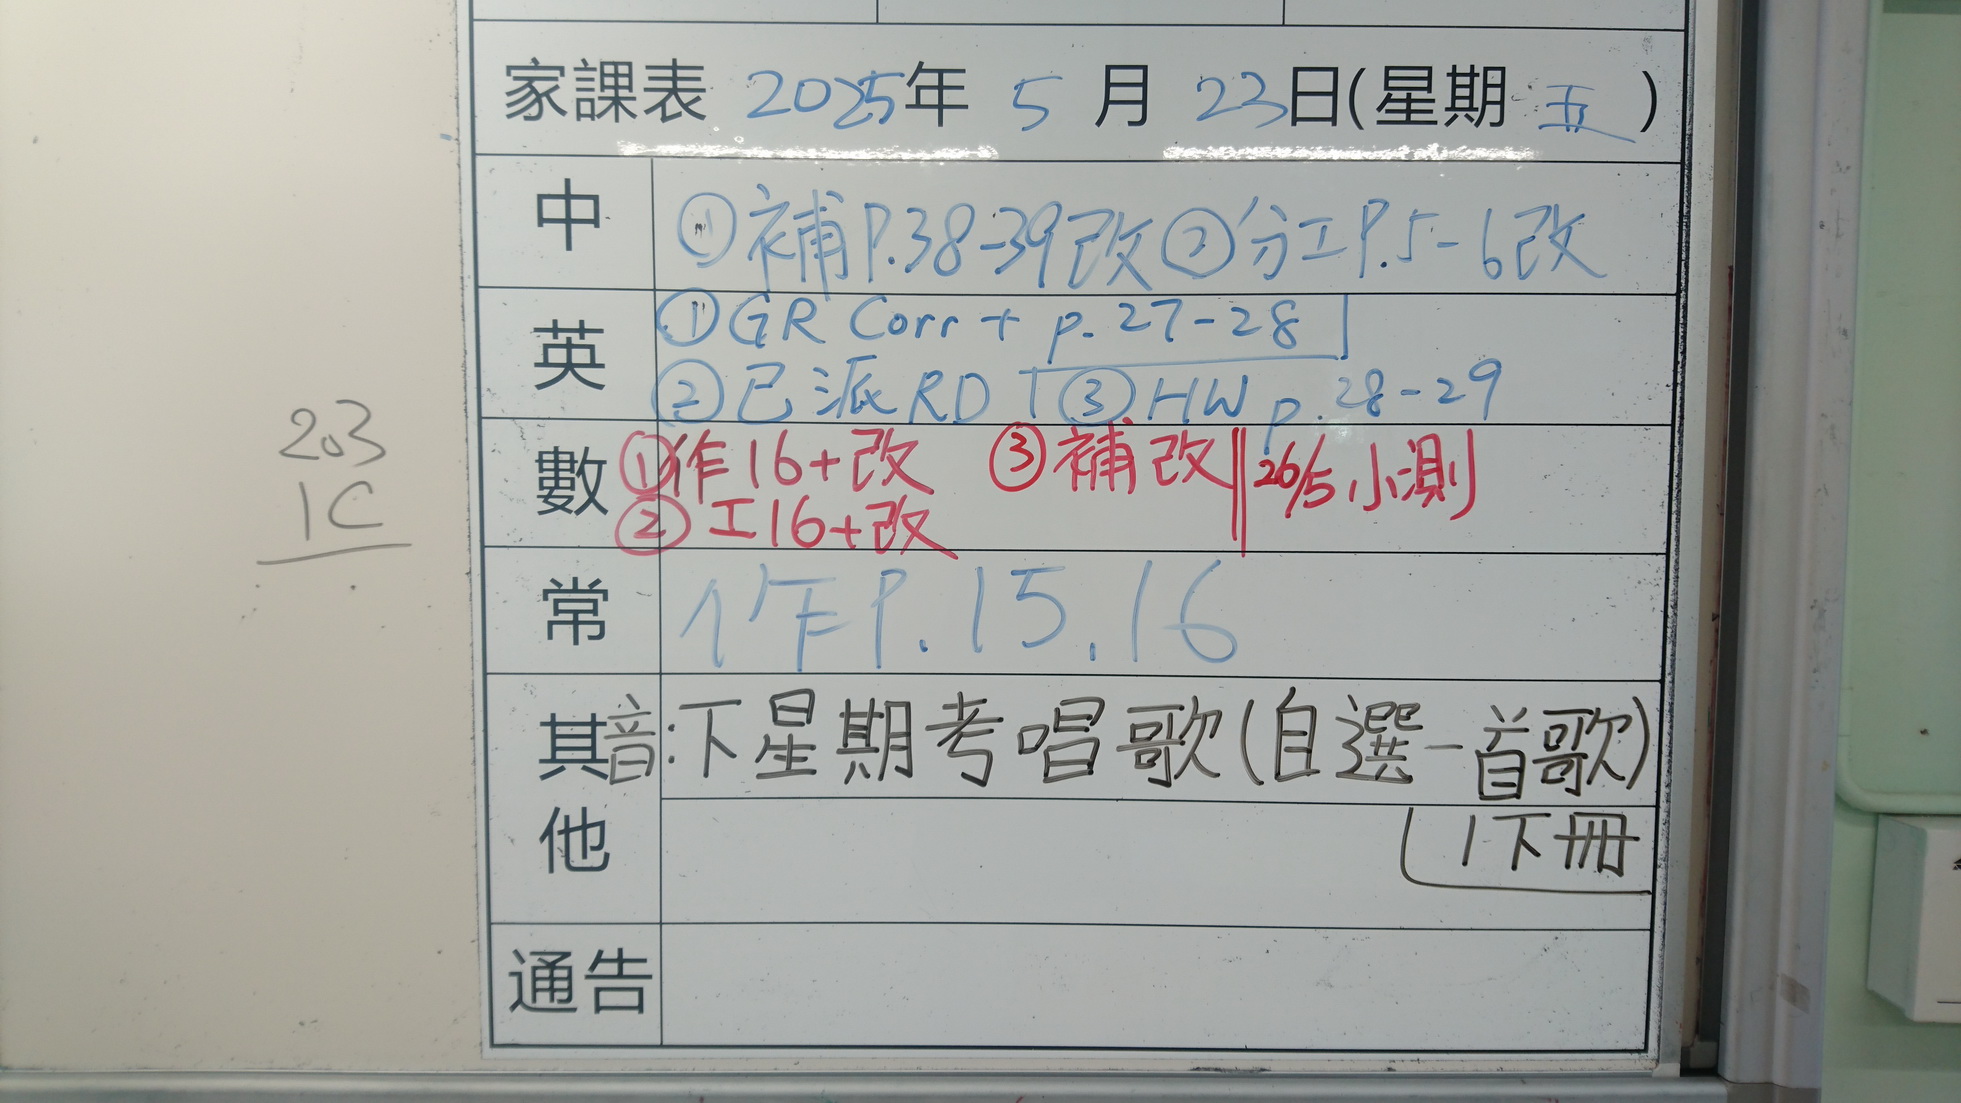 家課表 2025年 5 月 23日(星期 五 )
中 ①補P.38-39改②分工P.5-6改
英 ①GR Corr + p.27-28
②已派RD ③HW p.28-29
數 ①作16+改 ③補改 26/5小測
②工16+改
常 作P.15,16
其他 音:下星期考唱歌(自選一首歌)
1下冊
通告
203
1C